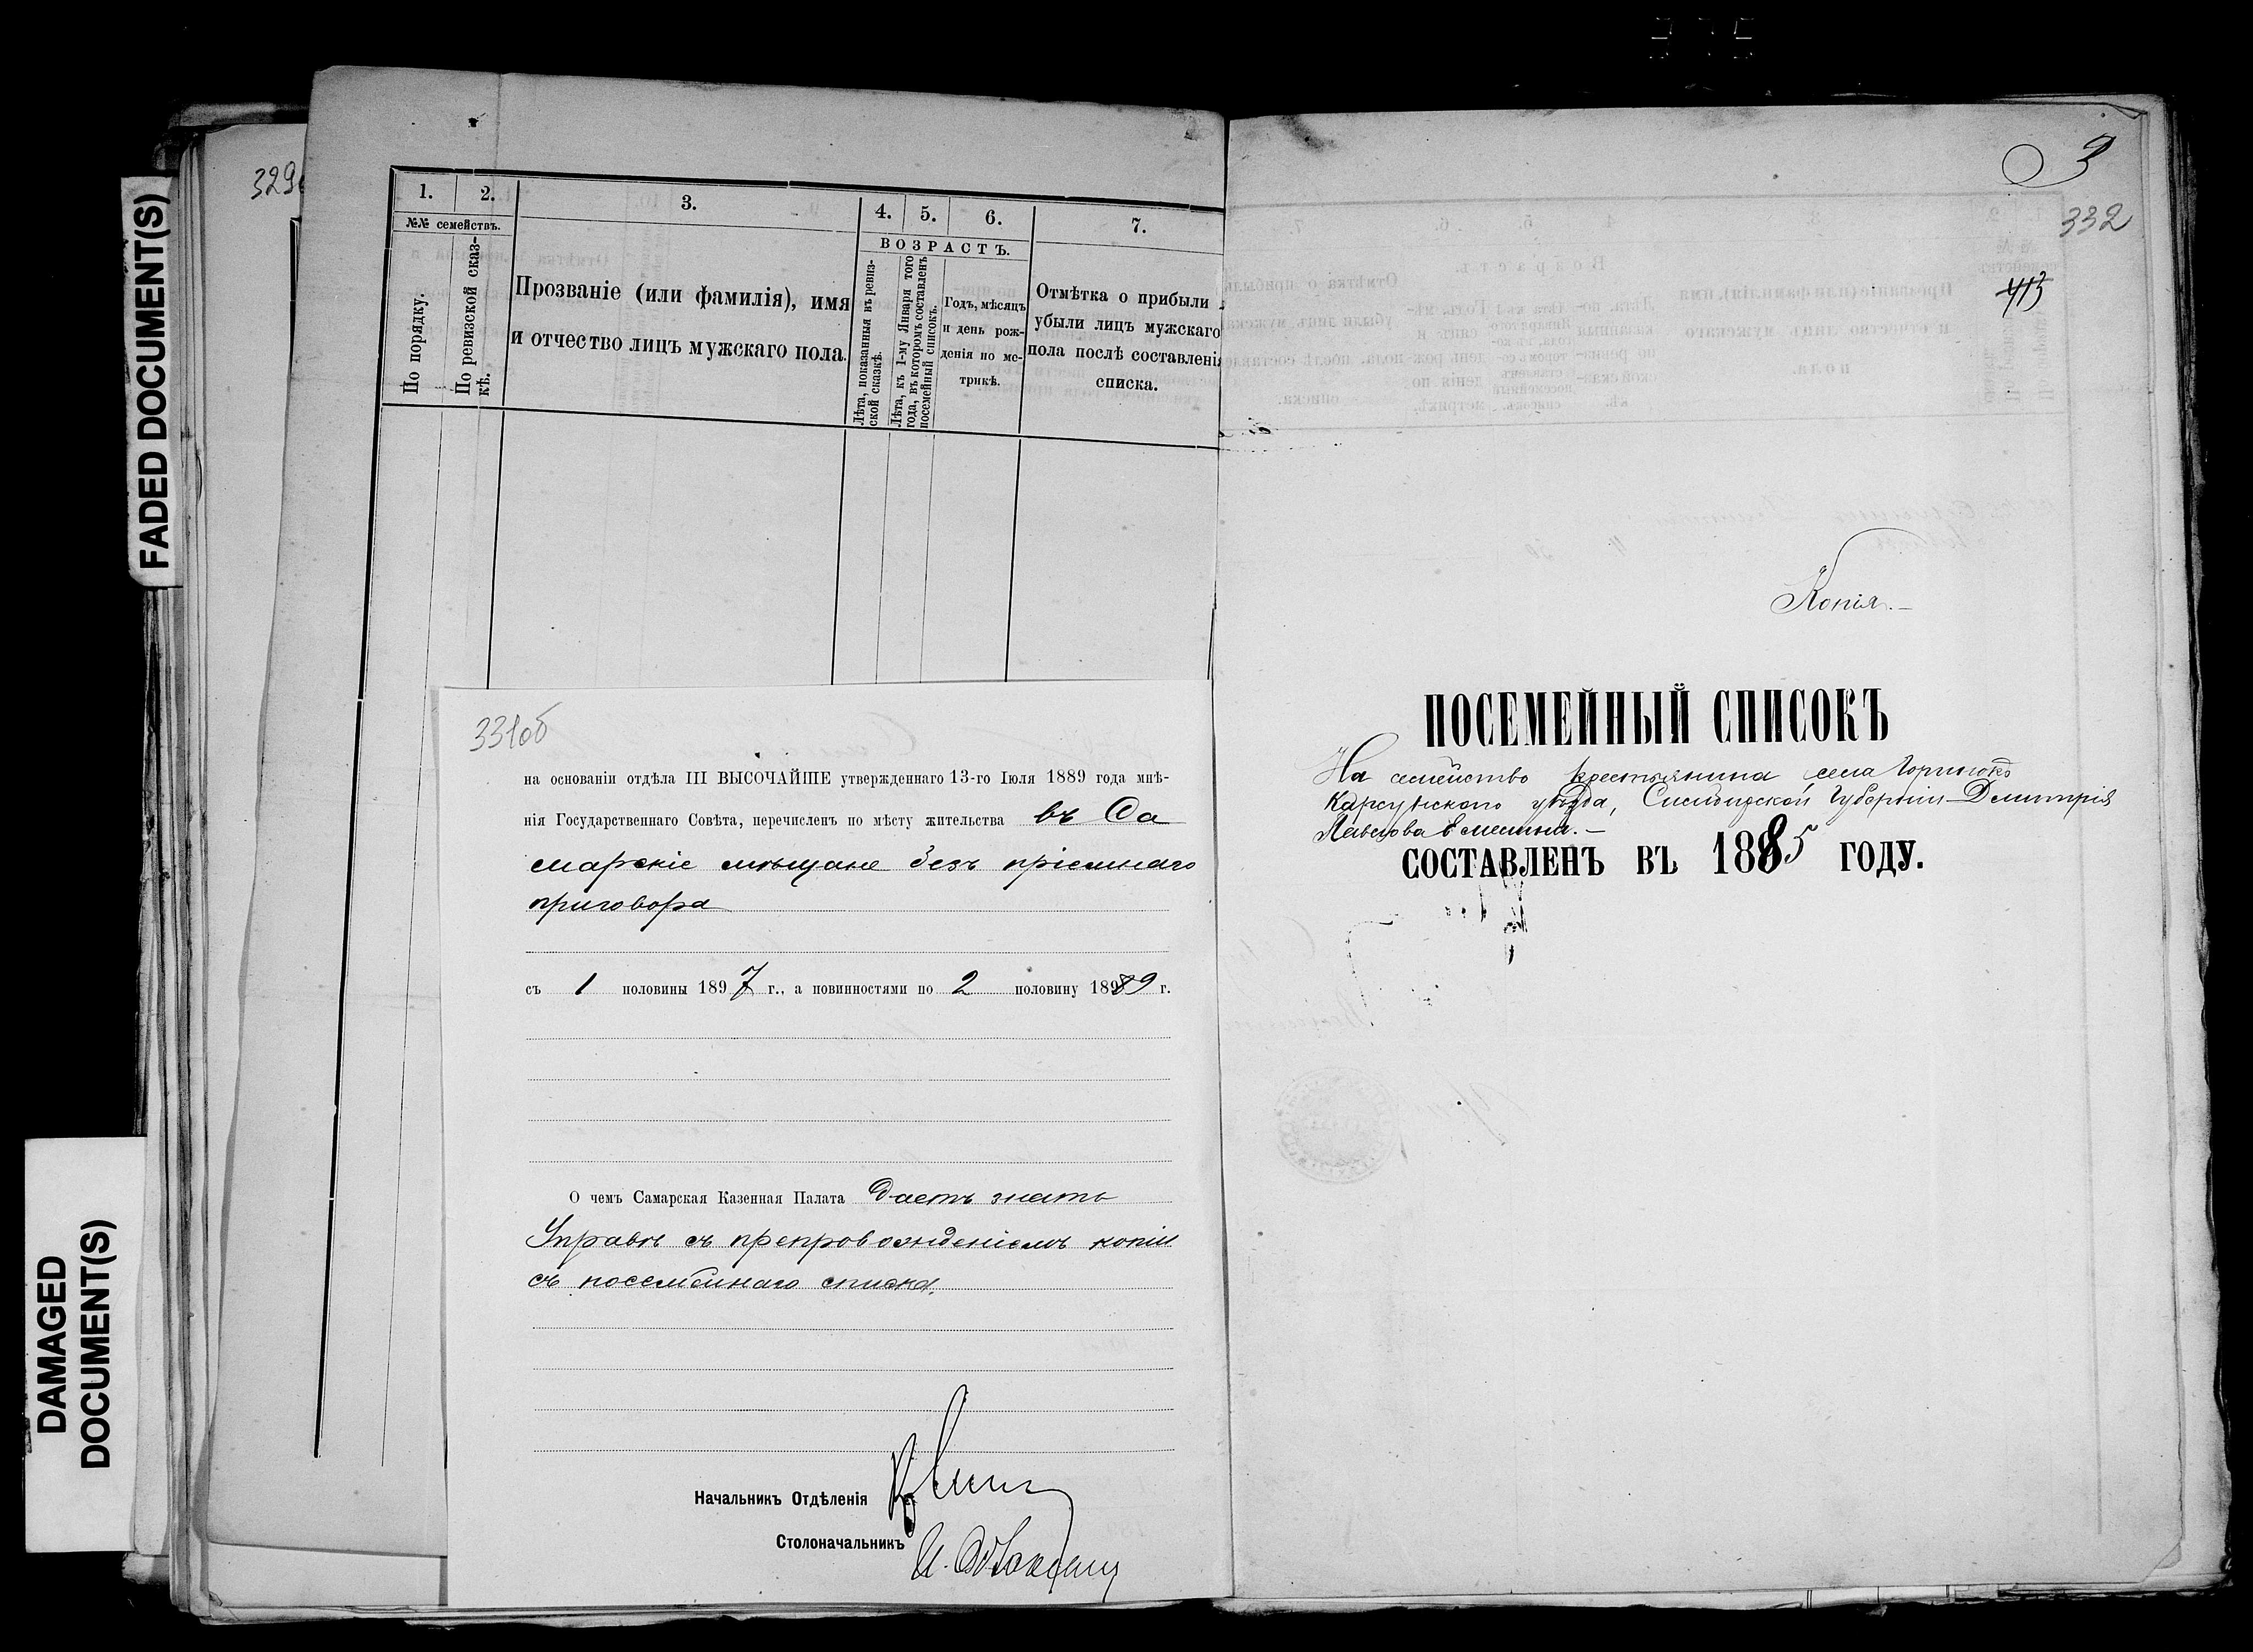 FADED DOCUMENT(S)
DAMAGED
DOCUMENT(S)
329
1.
2.
3.
4.
5.
6.
7.
№№ семействъ.
По порядку.
По ревизской сказ-
кѣ.
Прозваніе (или фамилія), имя
и отчество лицъ мужскаго пола.
ВОЗРАСТЪ.
Лѣта, показанныя въ ревиз-
ской сказкѣ.
Лѣта, къ 1-му Января того
года, въ которомъ составленъ
посемейный списокъ.
Годъ, мѣсяцъ
и день рож-
денія по ме-
трикѣ.
Отмѣтка о прибыли
убыли лицъ мужскаго
пола послѣ составленія
списка.
331об
на основаніи отдѣла III ВЫСОЧАЙШЕ утвержденнаго 13-го Іюля 1889 года мнѣ-
нія Государственнаго Совѣта, перечисленъ по мѣсту жительства въ Са
марскіе мѣщане безъ пріемнаго
приговора
съ 1 половины 1897 г., а повинностями по 2 половину 1899 г.
О чемъ Самарская Казенная Палата даетъ знать
Управѣ съ препровожденіемъ копіи
съ посемейнаго списка.
Начальникъ Отдѣленія
Столоначальникъ
3
332
413
Копія.—
ПОСЕМЕЙНЫЙ СПИСОКЪ
На семейство крестьянина села
Карсунскаго уѣзда, Симбирской Губерніи Дмитрія
Павлова
СОСТАВЛЕНЪ ВЪ 1885 ГОДУ.